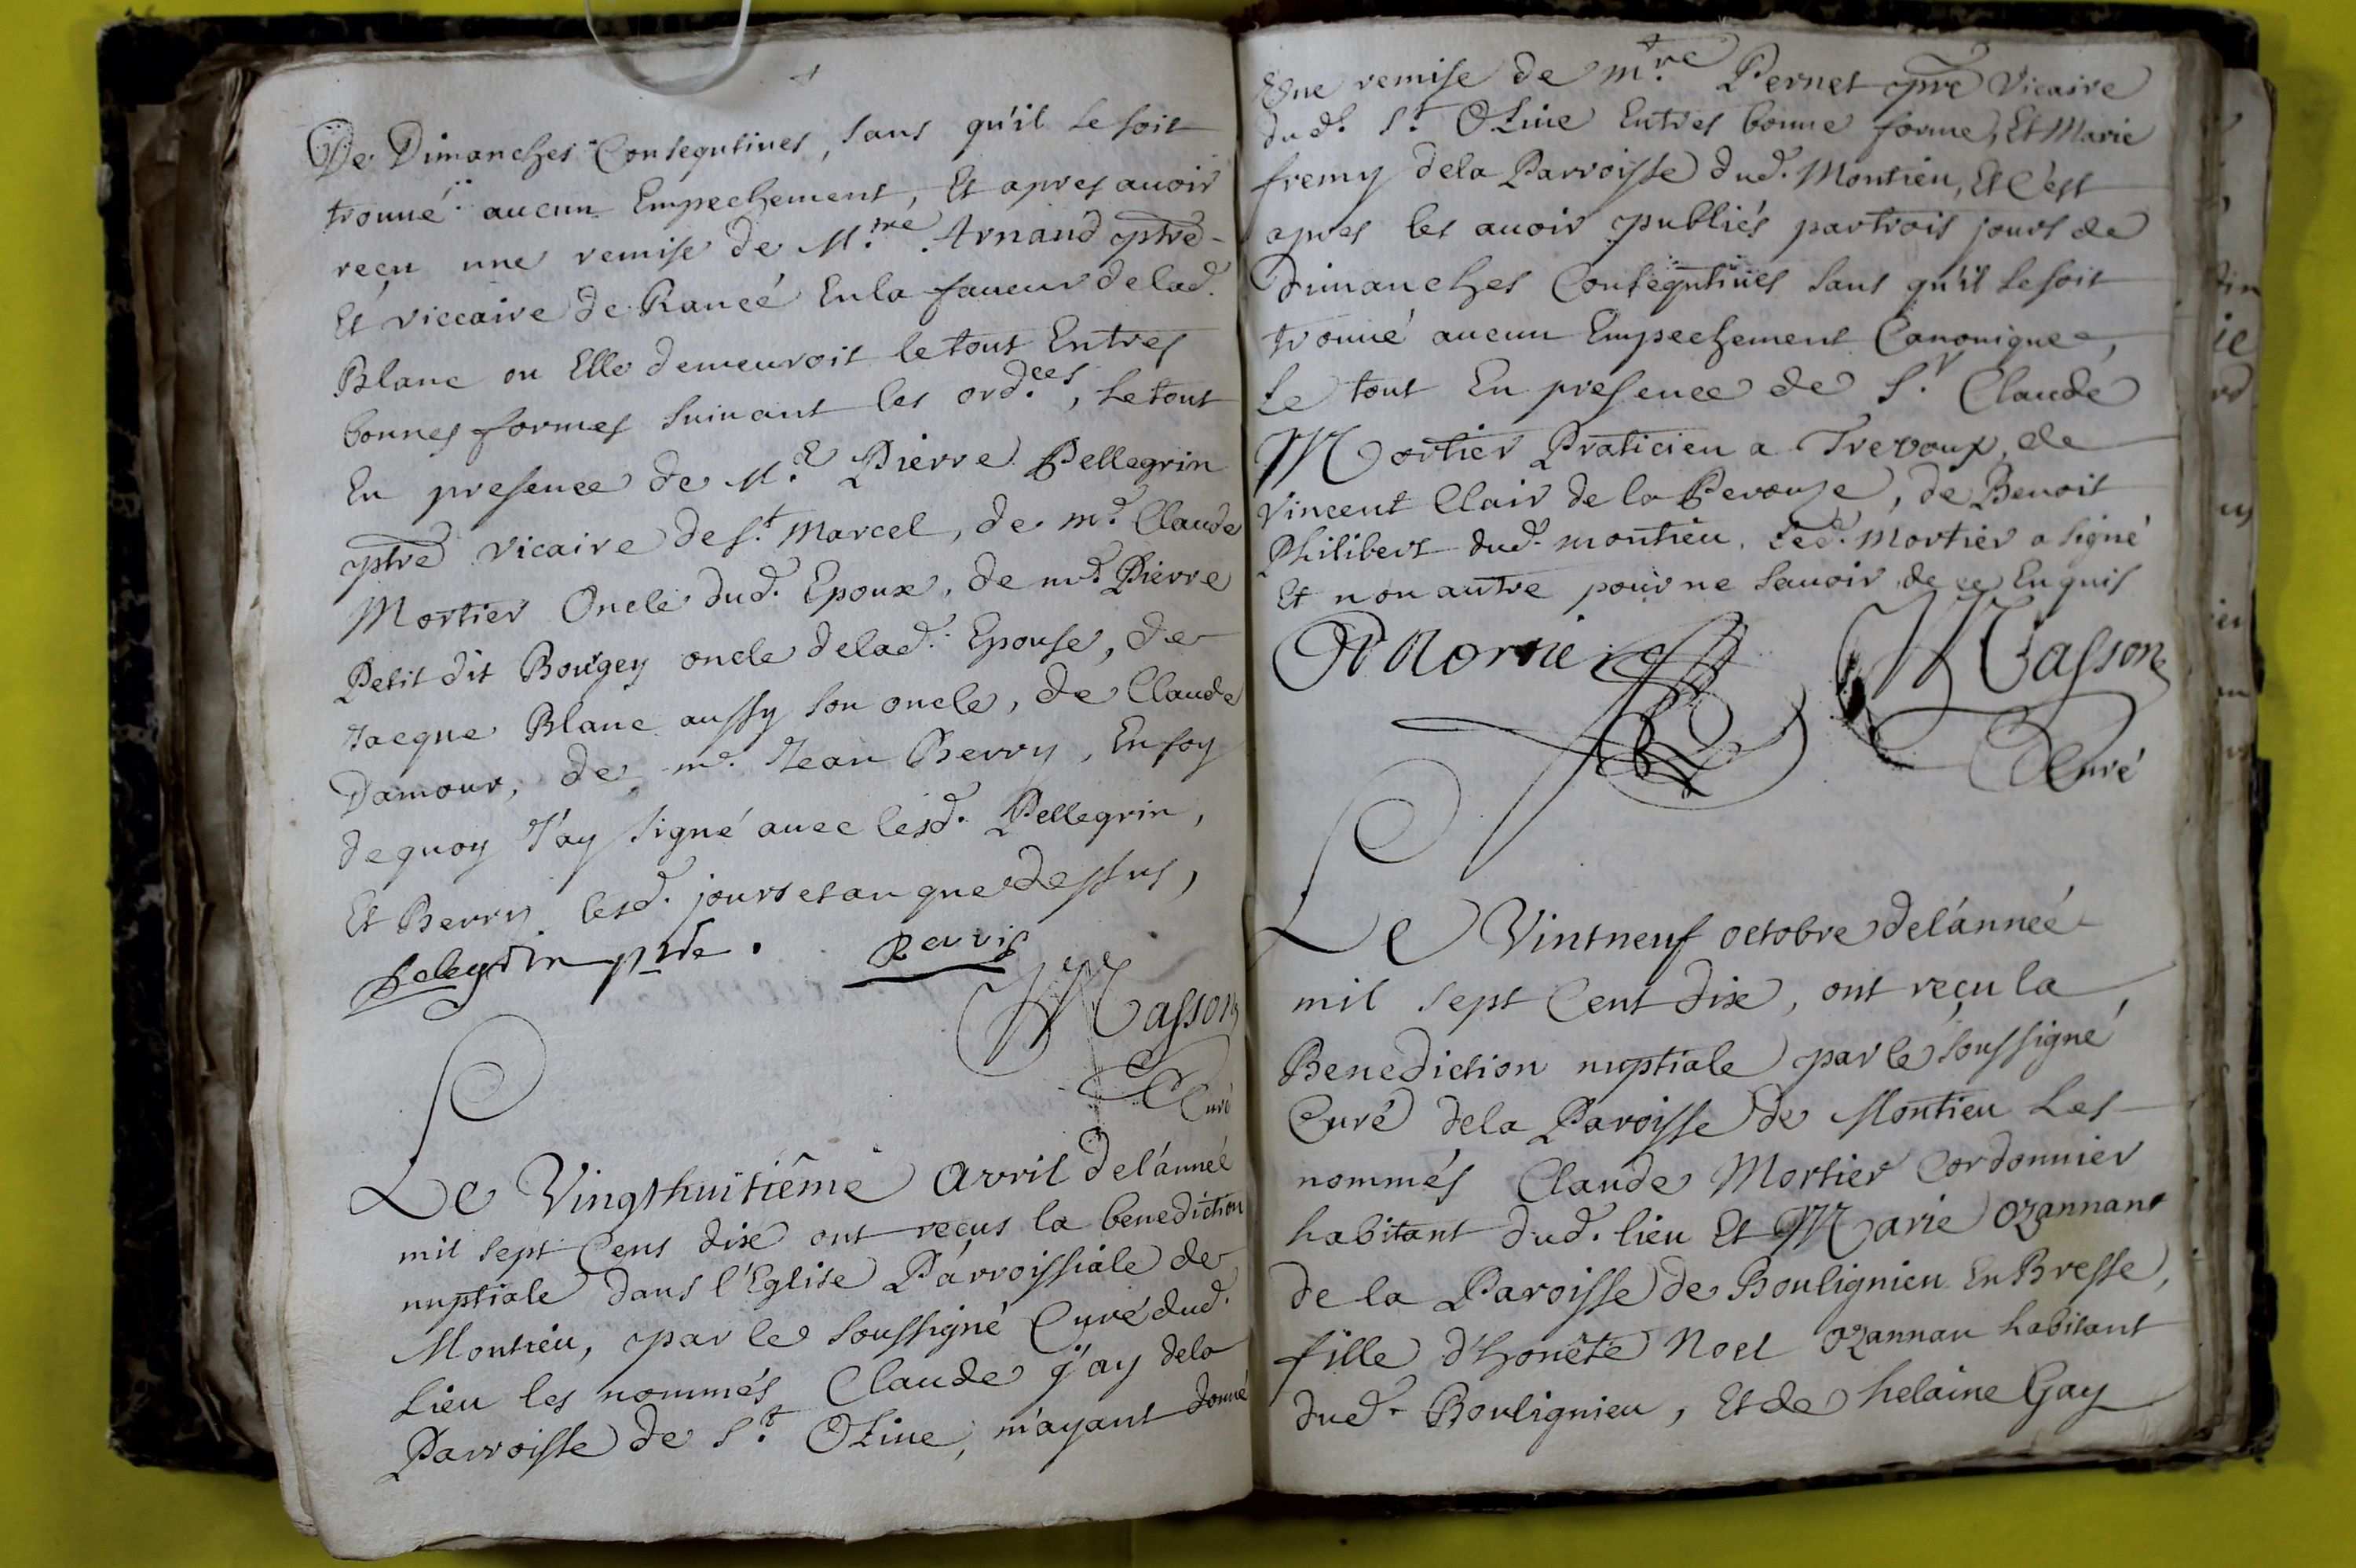 De Dimanches Consequtives, sans qu'il se soit
trouué aucun Empechement, Et apres auoir
reçu une remise de M.re Arnaud ptre
Et viccaire de Rancé En la faueur de lad.
Blanc ou Elle demeuroit le tout Entres
bonnes formes suiuant les ord.ces, le tout
En presence de M.e Pierre Pellegrin
ptre vicaire de S.t Marcel, de m.e Claude
Mortier Oncle dud. Epoux, de m.e Pierre
Petit dit Bougey oncle de lad. Epouse, de
Jacque Blanc aussy son oncle, de Claude
Damour, de m.e Jean Berry, En foy
de quoy J'ay signé auec lesd. Pellegrin,
Et Berry lesd. jours et an que dessus,
Pelegrin ptre. Berris
Masson
Curé
Le Vingthuitiême avril de l'année
mil sept Cens dix ont reçus la benediction
nuptiale dans l'Eglise Parroissiale de
Montieu, par le soussigné Curé dud.
Lieu les nommés Claude j'ay de la
Parroisse de S.t Oliue, m'ayant donné
Une remise de m.re Pernet ptre Vicaire
dud. S.t Oliue Entres bonne forme, Et Marie
fremy de la Parroisse dud. Montieu, Et C'est
apres les auoir publiés par trois jours de
Dimanches Consequtiues sans qu'il se soit
trouué aucun Empechement Canonique,
Le tout En presence de S.r Claude
Mortier Praticien a Trevoux, de
Vincent Clair de la Perouse, de Benoit
Philibert dud. montieu. Led. Mortier a signé
Et non autre pour ne sauoir de ce Enquis
Mortier Masson
Curé
Le Vintneuf octobre de l'année
mil sept Cent dix, ont reçu la
Benediction nuptiale par le soussigné
Curé de la Paroisse de Montieu Les
nommés Claude Mortier Cordonnier
habitant dud. lieu Et Marie Ozannant
de la Paroisse de Boulignieu En Bresse,
fille d'honête Noel Ozannan habitant
dud. Boulignieu, Et de helaine Gay